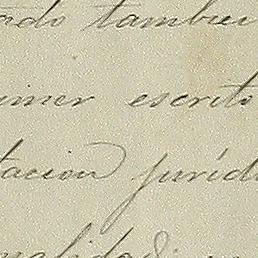 ado tambien
imer escrito
tacion jurídi
nalidad